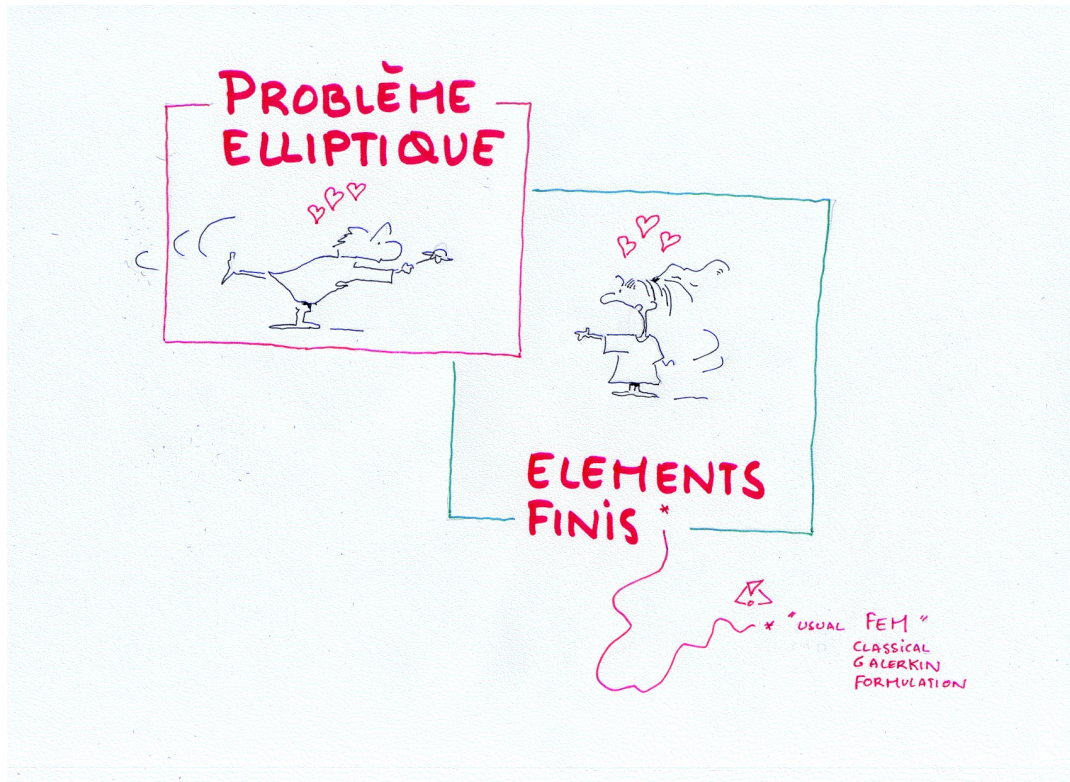 PROBLÈME
ELLIPTIQUE
ELEMENTS
FINIS *
* "USUAL FEM"
CLASSICAL
GALERKIN
FORMULATION